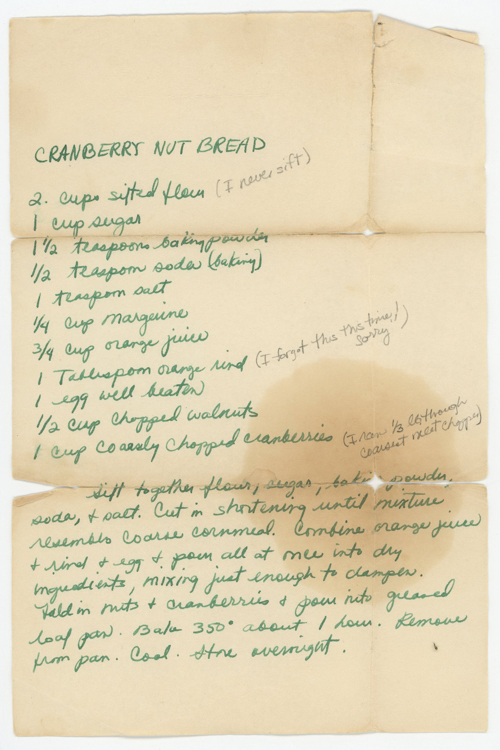 CRANBERRY NUT BREAD
2. cups sifted flour (I never sift)
1 cup sugar
1 1/2 teaspoons baking powder
1/2 teaspoon soda (baking)
1 teaspoon salt
1/4 cup margerine
3/4 cup orange juice
1 Tablespoon orange rind (I forgot this this time! sorry)
1 egg well beaten
1/2 cup chopped walnuts
1 cup coarsly chopped cranberries (I ran 1/3 lb through coarsest meat chopper)
Sift together flour, sugar, baking powder,
soda, + salt. Cut in shortening until mixture
resembls coarse cornmeal. Combine orange juice
+ rind + egg + pour all at once into dry
ingredients, mixing just enough to dampen.
Fold in nuts + cranberries + pour into greased
loaf pan. Bake 350° about 1 hour. Remove
from pan. Cool. Store overnight.